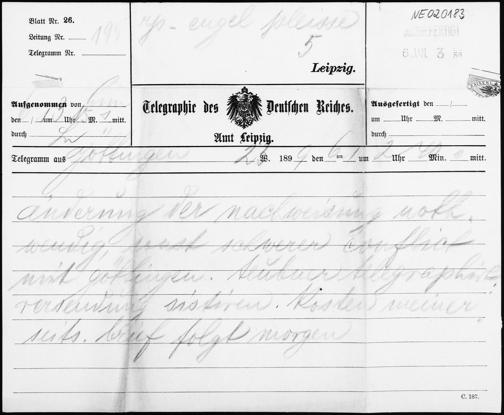 Blatt Nr. 26.
Leitung Nr.
Telegramm Nr.
rp- engel pleisse
5
Leipzig.
NE020183
Aufgenommen von
den / um Uhr M. mitt.
durch
Telegraphie des Deutschen Reiches.
Amt Leipzig.
Ausgefertigt den /
um Uhr M. mitt.
durch
Telegramm aus Göttingen W. 1899 den um Uhr Min. mitt.
änderung der nachweisung noth-
wendig, sonst schwerer conflict
mit göttingen. teubner telegraphisch
versendung sistiren. Kosten meiner
seits. brief folgt morgen
C. 187.